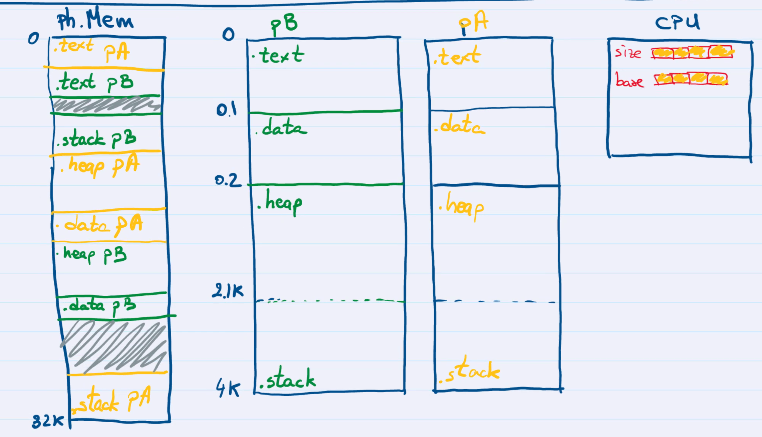 Ph.Mem
0
.text pA
.text pB
.stack pB
.heap pA
.data pA
.heap pB
.data pB
.stack pA
32K
pB
0
.text
0.1
.data
0.2
.heap
2.1K
.stack
4K
pA
.text
.data
.heap
.stack
CPU
size
base